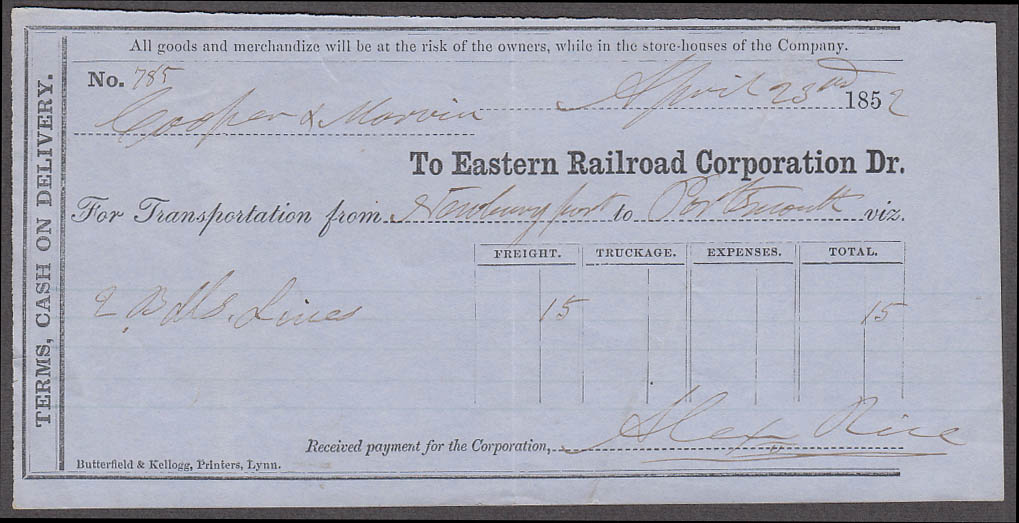 All goods and merchandize will be at the risk of the owners, while in the store-houses of the Company.
No. 785
April 23rd 1852
Cooper & Marvin
To Eastern Railroad Corporation Dr.
For Transportation from Newburyport to Portsmouth viz.
FREIGHT. TRUCKAGE. EXPENSES. TOTAL.
2 Bdls. Lines 15 15
Received payment for the Corporation, Alex Rice
Butterfield & Kellogg, Printers, Lynn.
TERMS, CASH ON DELIVERY.